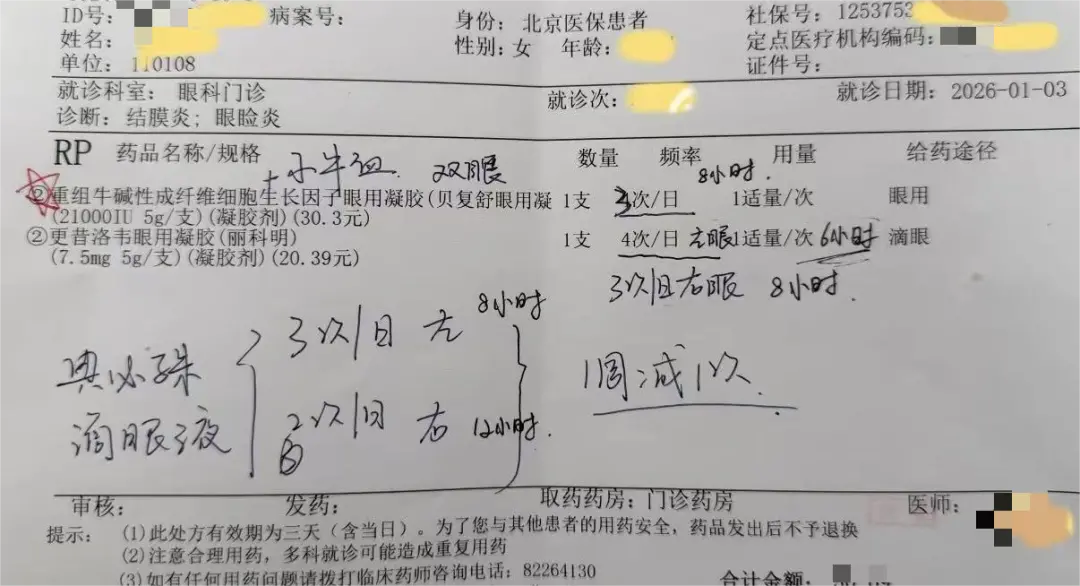 ID号: 病案号: 身份: 北京医保患者 社保号: 1253753
姓名: 性别: 女 年龄: 定点医疗机构编码:
单位: 110108 证件号:
就诊科室: 眼科门诊 就诊次: 就诊日期: 2026-01-03
诊断: 结膜炎; 眼睑炎
RP 药品名称/规格 数量 频率 用量 给药途径
+小牛血 双眼 8小时.
②重组牛碱性成纤维细胞生长因子眼用凝胶(贝复舒眼用凝 1支 3次/日 1适量/次 眼用
(21000IU 5g/支)(凝胶剂)(30.3元)
②更昔洛韦眼用凝胶(丽科明) 1支 4次/日 左眼 1适量/次 6小时 滴眼
(7.5mg 5g/支)(凝胶剂)(20.39元)
3次/日右眼 8小时.
3次/日 左 8小时
典必殊
滴眼液
2次/日 右 12小时.
1周减1次.
审核: 发药: 取药药房: 门诊药房 医师:
提示: (1)此处方有效期为三天(含当日)。为了您与其他患者的用药安全, 药品发出后不予退换
(2)注意合理用药, 多科就诊可能造成重复用药
(3)如有任何用药问题请拨打临床药师咨询电话: 82264130
合计金额: